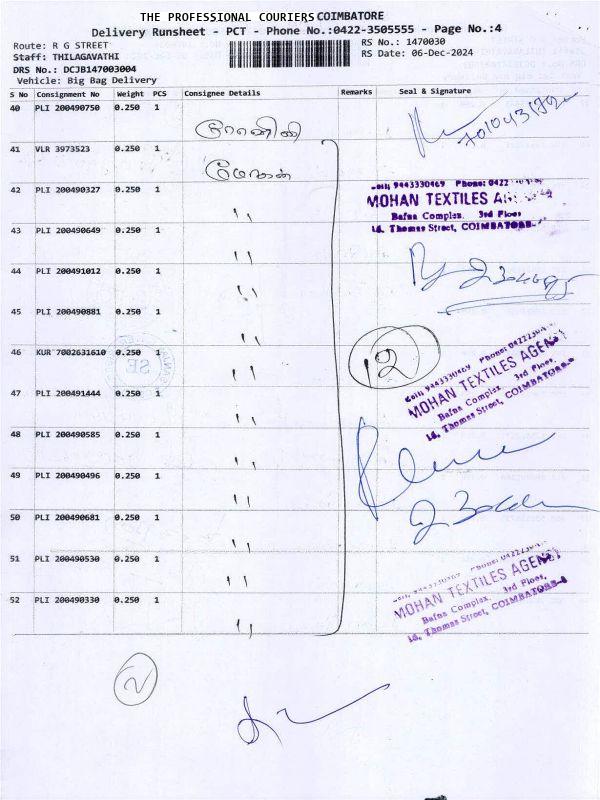 THE PROFESSIONAL COURIERS COIMBATORE
Delivery Runsheet - PCT - Phone No.:0422-3505555 - Page No.:4
Route: R G STREET RS No.: 1470030
Staff: THILAGAVATHI RS Date: 06-Dec-2024
DRS No.: DCJB147003004
Vehicle: Big Bag Delivery
S No Consignment No Weight PCS Consignee Details Remarks Seal & Signature
40 PLI 200490750 0.250 1
41 VLR 3973523 0.250 1 மோகன்
42 PLI 200490327 0.250 1 11
Cell: 9443330469 Phone: 0422
MOHAN TEXTILES
Bafna Complex, 3rd Floor
18, Thomas Street, COIMBATORE-
43 PLI 200490649 0.250 1 11
44 PLI 200491012 0.250 1 11
45 PLI 200490881 0.250 1 11
46 KUR 7002631610 0.250 1 11
12
Cell: 9443330469 Phone: 0422230
MOHAN TEXTILES AGENCY
Bafna Complex, 3rd Floor,
18, Thomas Street, COIMBATORE-
47 PLI 200491444 0.250 1 11
48 PLI 200490585 0.250 1 11
49 PLI 200490496 0.250 1 11
50 PLI 200490681 0.250 1 11
51 PLI 200490530 0.250 1 11
52 PLI 200490330 0.250 1 11
MOHAN TEXTILES AGENCY
Bafna Complex, 3rd Floor,
18, Thomas Street, COIMBATORE-1
2